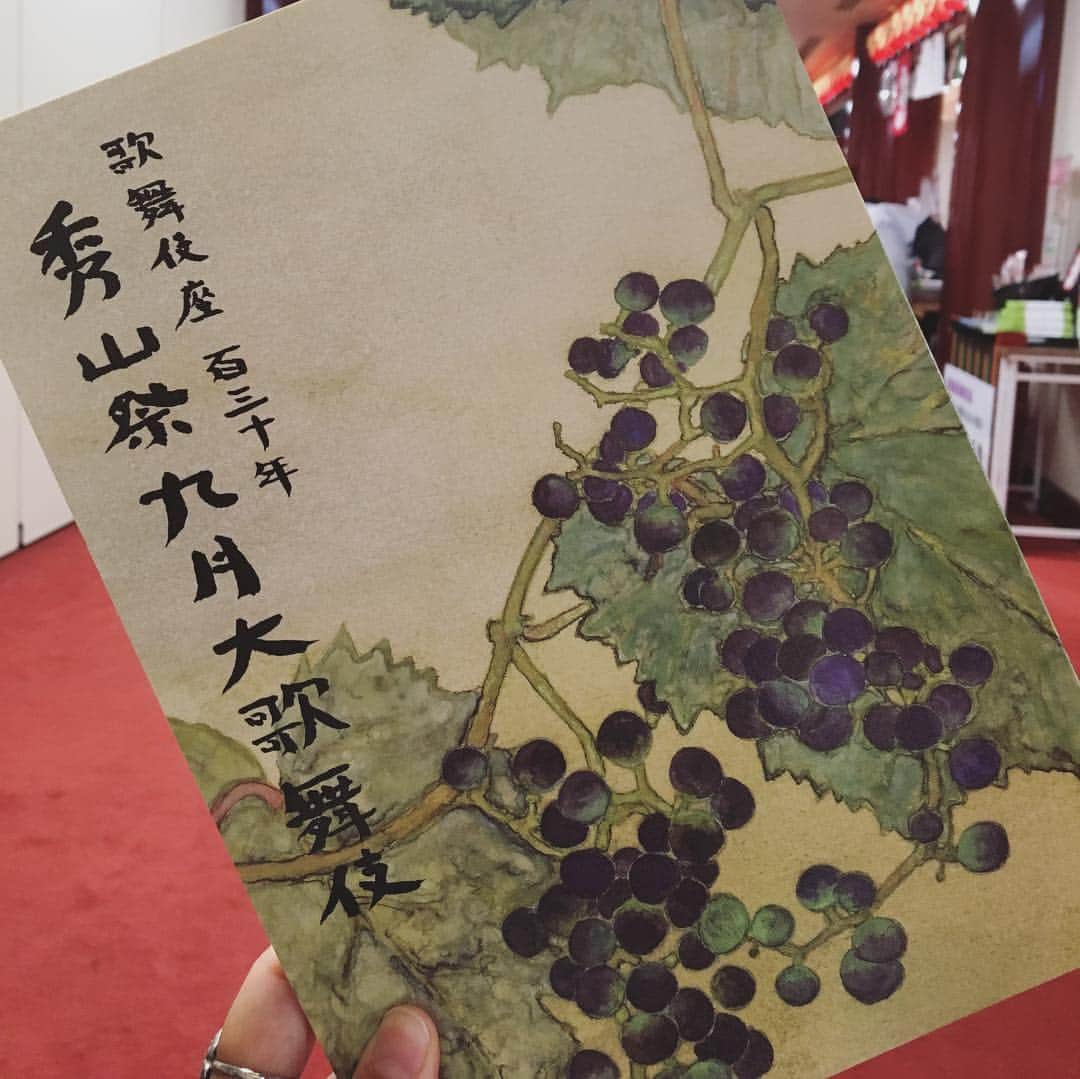 歌舞伎座百三十年
秀山祭九月大歌舞伎